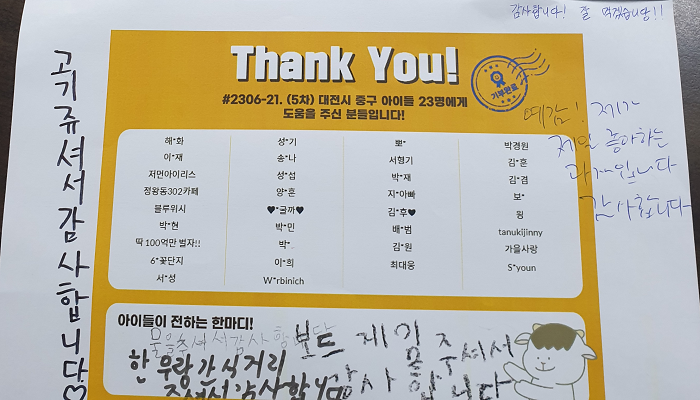 감사합니다! 잘 먹겠습니다!!
Thank You!
기부완료
#2306-21. (5차) 대전시 중구 아이들 23명에게
도움을 주신 분들입니다!
고기쥬셔서감사합니다♡
예감! 제가
제일 좋아하는
과자입니다
감사합니다
해*화
이*재
저먼아이리스
정왕동302카페
블루위시
박*현
딱 100억만 벌자!!
6*꽃단지
서*성
성*기
송*나
성*섭
양*훈
♥*굴까*♥
박*민
박*
이*희
W*rbinich
뽀*
서형기
박*재
지*아빠
김*후♥
배*범
김*원
최대웅
박경원
김*훈
김*겸
보*
윙
tanukijinny
가을사랑
S*youn
아이들이 전하는 한마디!
물을주셔서감사합니다
보드 게임
을 주셔서
감사 합니다
한우랑간식거리
주셔서감사합니다